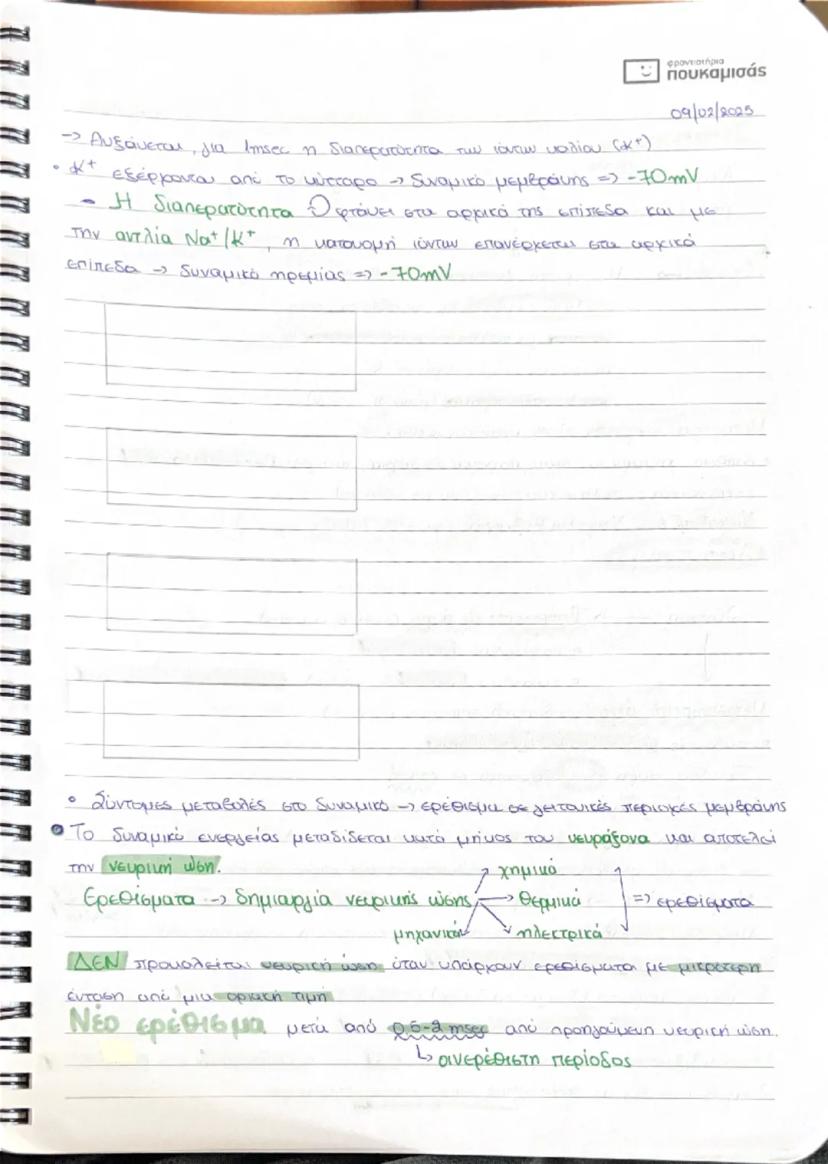 φροντιστήρια
πουκαμισάς
09/02/2025
→ Αυξάνεται, για 1msec η διαπερατότητα των ιόντων καλίου (K⁺)
• K⁺ εξέρχονται από το κύτταρο → δυναμικό μεμβράνης => -70mV
- Η διαπερατότητα φτάνει στα αρχικά της επίπεδα και με
την αντλία Na⁺/K⁺, η κατανομή ιόντων επανέρχεται στα αρχικά
επίπεδα → δυναμικό ηρεμίας => -70mV
• Σύντομες μεταβολές στο δυναμικό → ερέθισμα σε γειτονικές περιοχές μεμβράνης
• Το δυναμικό ενεργείας μεταδίδεται κατά μήκος του νευράξονα και αποτελεί
την νευρική ώση.
χημικά
Ερεθίσματα → δημιουργία νευρικής ώσης → θερμικά => ερεθίσματα
μηχανικά ηλεκτρικά
ΔΕΝ προκαλείται νευρική ώση όταν υπάρχουν ερεθίσματα με μικρότερη
ένταση από μια οριακή τιμή
Νέο ερέθισμα μετά από 0,5-2 msec από προηγούμενη νευρική ώση.
↳ ανερέθιστη περίοδος